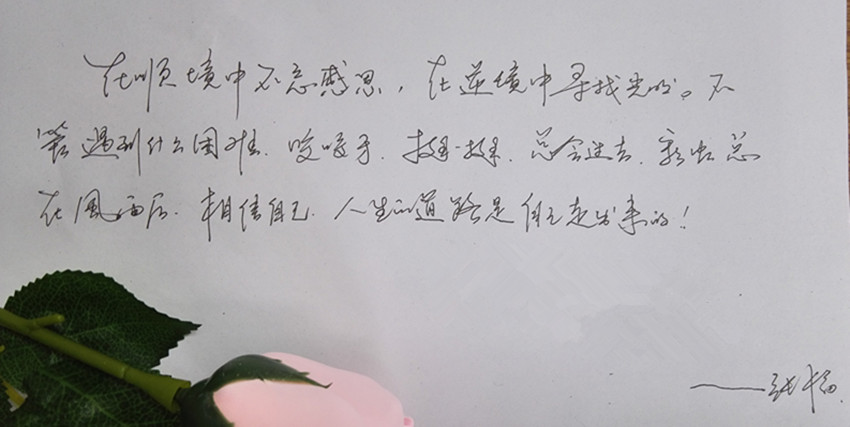 在顺境中不忘感恩，在逆境中寻找光明。不
管遇到什么困难.咬咬牙.撑一撑.总会过去.彩虹总
在風雨后.相信自己.人生的道路是自己走出来的！
——张